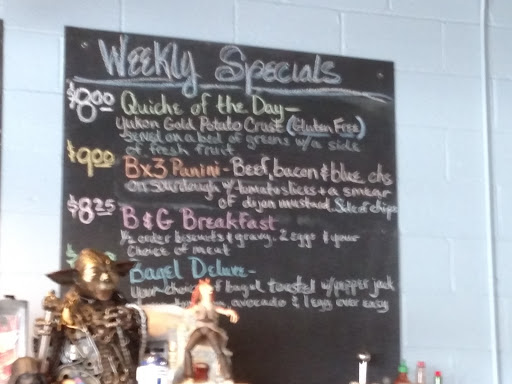 Weekly Specials
$8.00 Quiche of the Day-
Yukon Gold Potato Crust (Gluten Free)
served on a bed of greens w/a side
of fresh fruit
$9.00 Bx3 Panini - Beef, bacon & blue chs
on sourdough w/ tomato slices + a smear
of dijon mustard. Side of chips
$8.25 B & G Breakfast
1/2 order biscuits & gravy. 2 eggs & your
choice of meat
Bagel Deluxe-
Your choice of bagel toasted w/pepper jack
avocado & 1 egg over easy